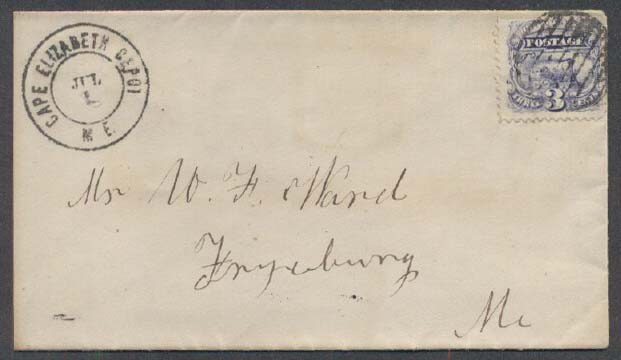 CAPE ELIZABETH DEPOT
JUL
M E
POSTAGE
3
Mr W. F. Ward
Fryeburg
Me